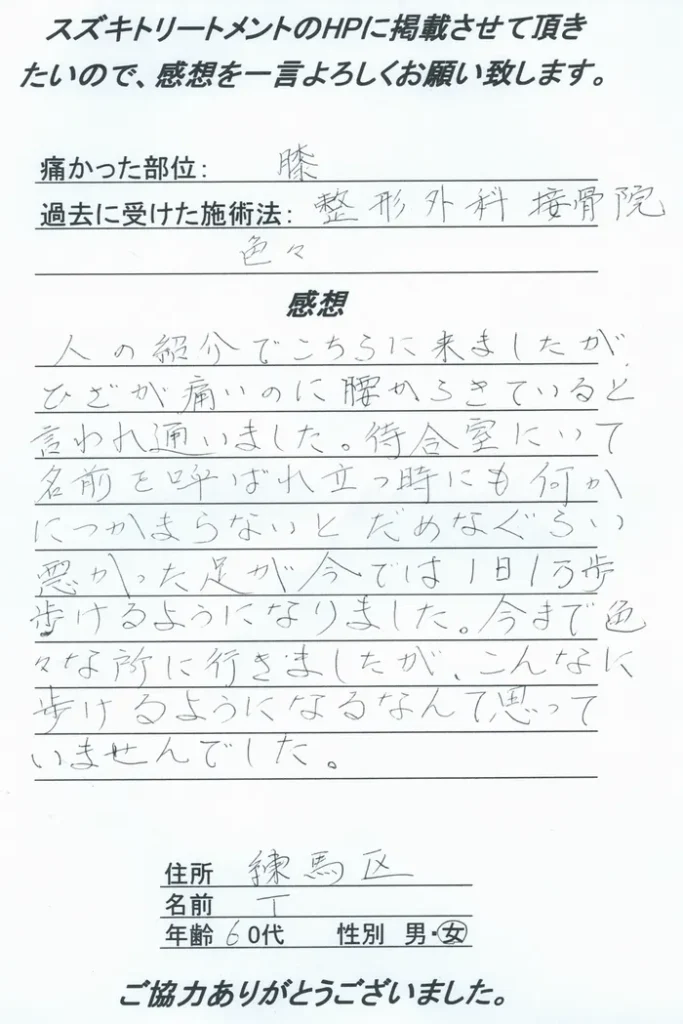 スズキトリートメントのHPに掲載させて頂き
たいので、感想を一言よろしくお願い致します。
痛かった部位: 膝
過去に受けた施術法: 整形外科 接骨院
色々
感想
人の紹介でこちらに来ましたが
ひざが痛いのに腰からきていると
言われ通いました。待合室にいて
名前を呼ばれ立つ時にも何か
につかまらないとだめなぐらい
悪かった足が今では1日1万歩
歩けるようになりました。今まで色
々な所に行きましたが、こんなに
歩けるようになるなんて思って
いませんでした。
住所 練馬区
名前 T
年齢 60代 性別 男・女
ご協力ありがとうございました。